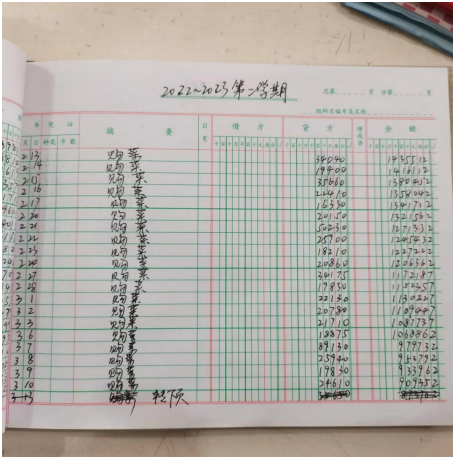 2022~2023第二学期
总第 页 分第 页
年 凭证 摘要 日页 借方 贷方 余额
月 日 种类 号数
2 13 购菜 34040 1435512
2 14 购菜 19400 1416112
2 15 购菜 35660 1380452
2 16 购菜 22410 1358042
2 17 购菜 16330 1341712
2 20 购菜 20150 1321562
2 21 购菜 50230 1271332
2 22 购菜 25900 1245432
2 23 购菜 18210 1227222
2 24 购菜 20860 1206362
2 27 购菜 34175 1172187
2 28 购菜 19830 1152357
3 1 购菜 22130 1130227
3 2 购菜 20780 1109447
3 3 购菜 21710 1087737
3 6 购菜 18875 1068862
3 7 购菜 89130 979732
3 8 购菜 25940 953792
3 9 购菜 19830 933962
3 10 购菜 24610 909352
3 13 转下页